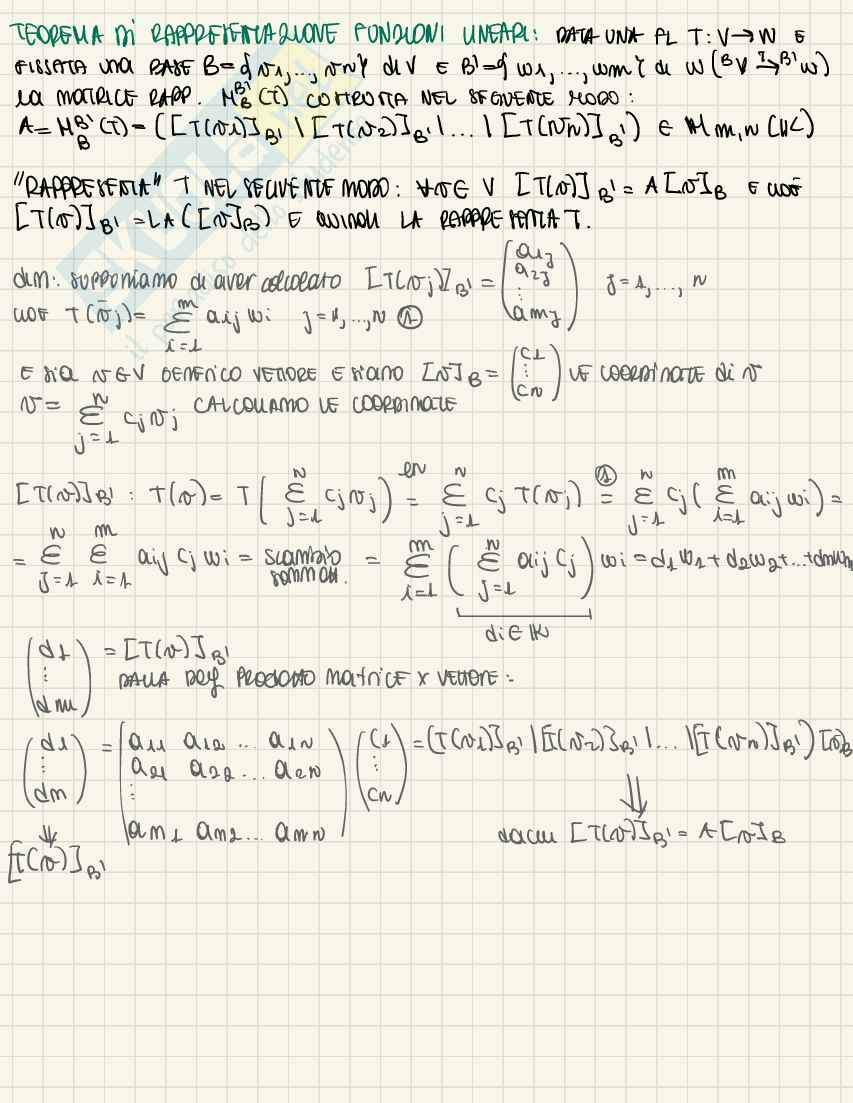 TEOREMA DI RAPPRESENTAZIONE FUNZIONI LINEARI: DATA UNA FL T: V→W E
FISSATA UNA BASE B={v1,...,vn} di V E B'={w1,...,wm} di W (ᴮV →ᵀ ᴮ'W)
LA MATRICE RAPP. M_B^B'(T) COSTRUITA NEL SEGUENTE MODO:
A = M_B^B'(T) = ([T(v1)]B' | [T(v2)]B' | ... | [T(vn)]B') ∈ Mm,n (K)
"RAPPRESENTA" T NEL SEGUENTE MODO: ∀v∈V [T(v)]B' = A[v]B E cioè
[T(v)]B' = LA([v]B) E QUINDI LA RAPPRESENTA T.
dim: supponiamo di aver calcolato [T(vj)]B' = (a1j a2j ⋮ amj) j=1,...,n
cioè T(vj) = Σ_{i=1}^{m} aij wi j=1,...,n ①
E sia v∈V GENERICO VETTORE E siano [v]B = (c1 ⋮ cn) LE COORDINATE di v
v = Σ_{j=1}^{n} cj vj CALCOLIAMO LE COORDINATE
[T(v)]B' : T(v) = T( Σ_{j=1}^{n} cj vj ) = Σ_{j=1}^{n} cj T(vj) =① Σ_{j=1}^{n} cj ( Σ_{i=1}^{m} aij wi ) =
= Σ_{j=1}^{n} Σ_{i=1}^{m} aij cj wi = scambio sommat. = Σ_{i=1}^{m} ( Σ_{j=1}^{n} aij cj ) wi = d1w1 + d2w2 + ... + dmwm
di ∈ K
(d1 ⋮ dm) = [T(v)]B'
DALLA DEF PRODOTTO MATRICE X VETTORE:
(d1 ⋮ dm) = (a11 a12 ... a1n a21 a22 ... a2n ⋮ am1 am2 ... amn) (c1 ⋮ cn) = (T(v1)]B' | [T(v2)]B' | ... | [T(vn)]B') [v]B
⇓ ⇓
[T(v)]B' da cui [T(v)]B' = A[v]B